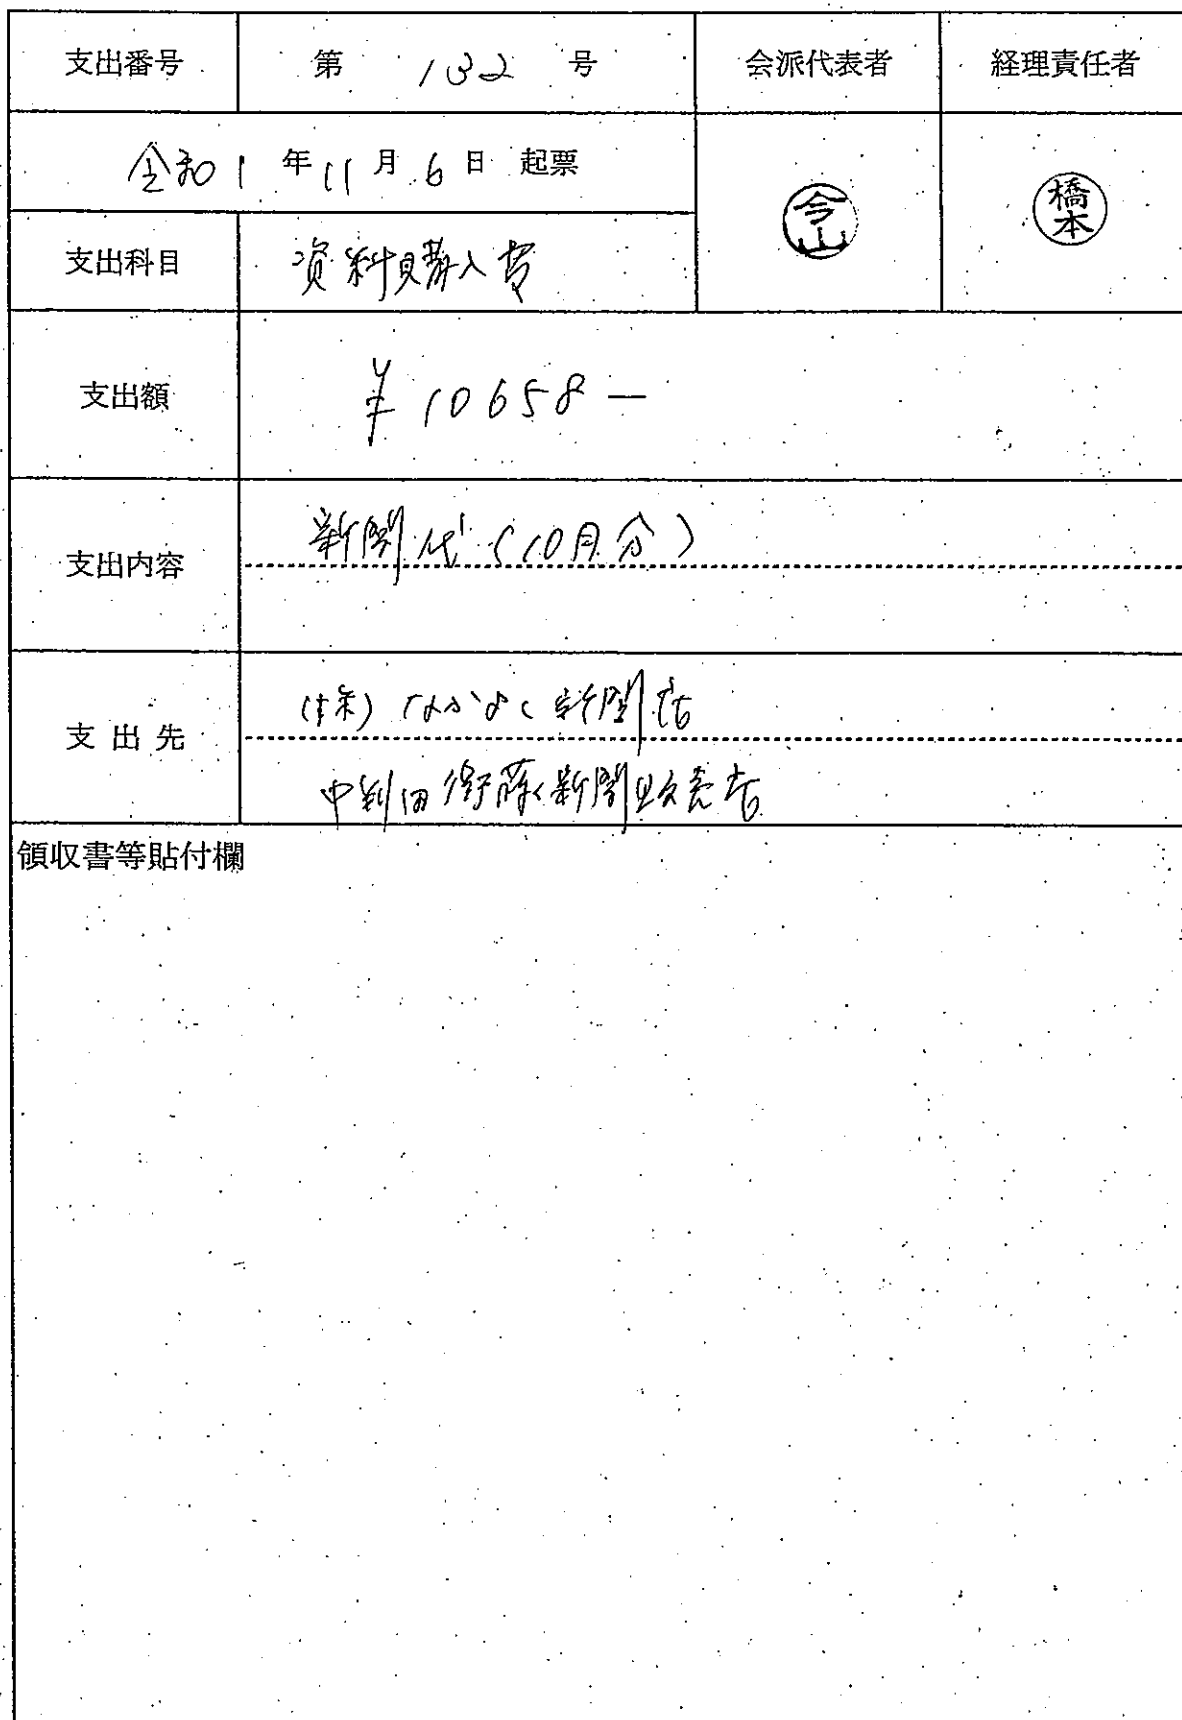 支出番号 第 132 号 会派代表者 経理責任者
令和 1 年 11 月 6 日 起票
今山 橋本
支出科目 資料購入費
支出額 ¥10658-
支出内容 新聞代(10月分)
支出先 (株)なかよし新聞店
中判田衛藤新聞販売店
領収書等貼付欄